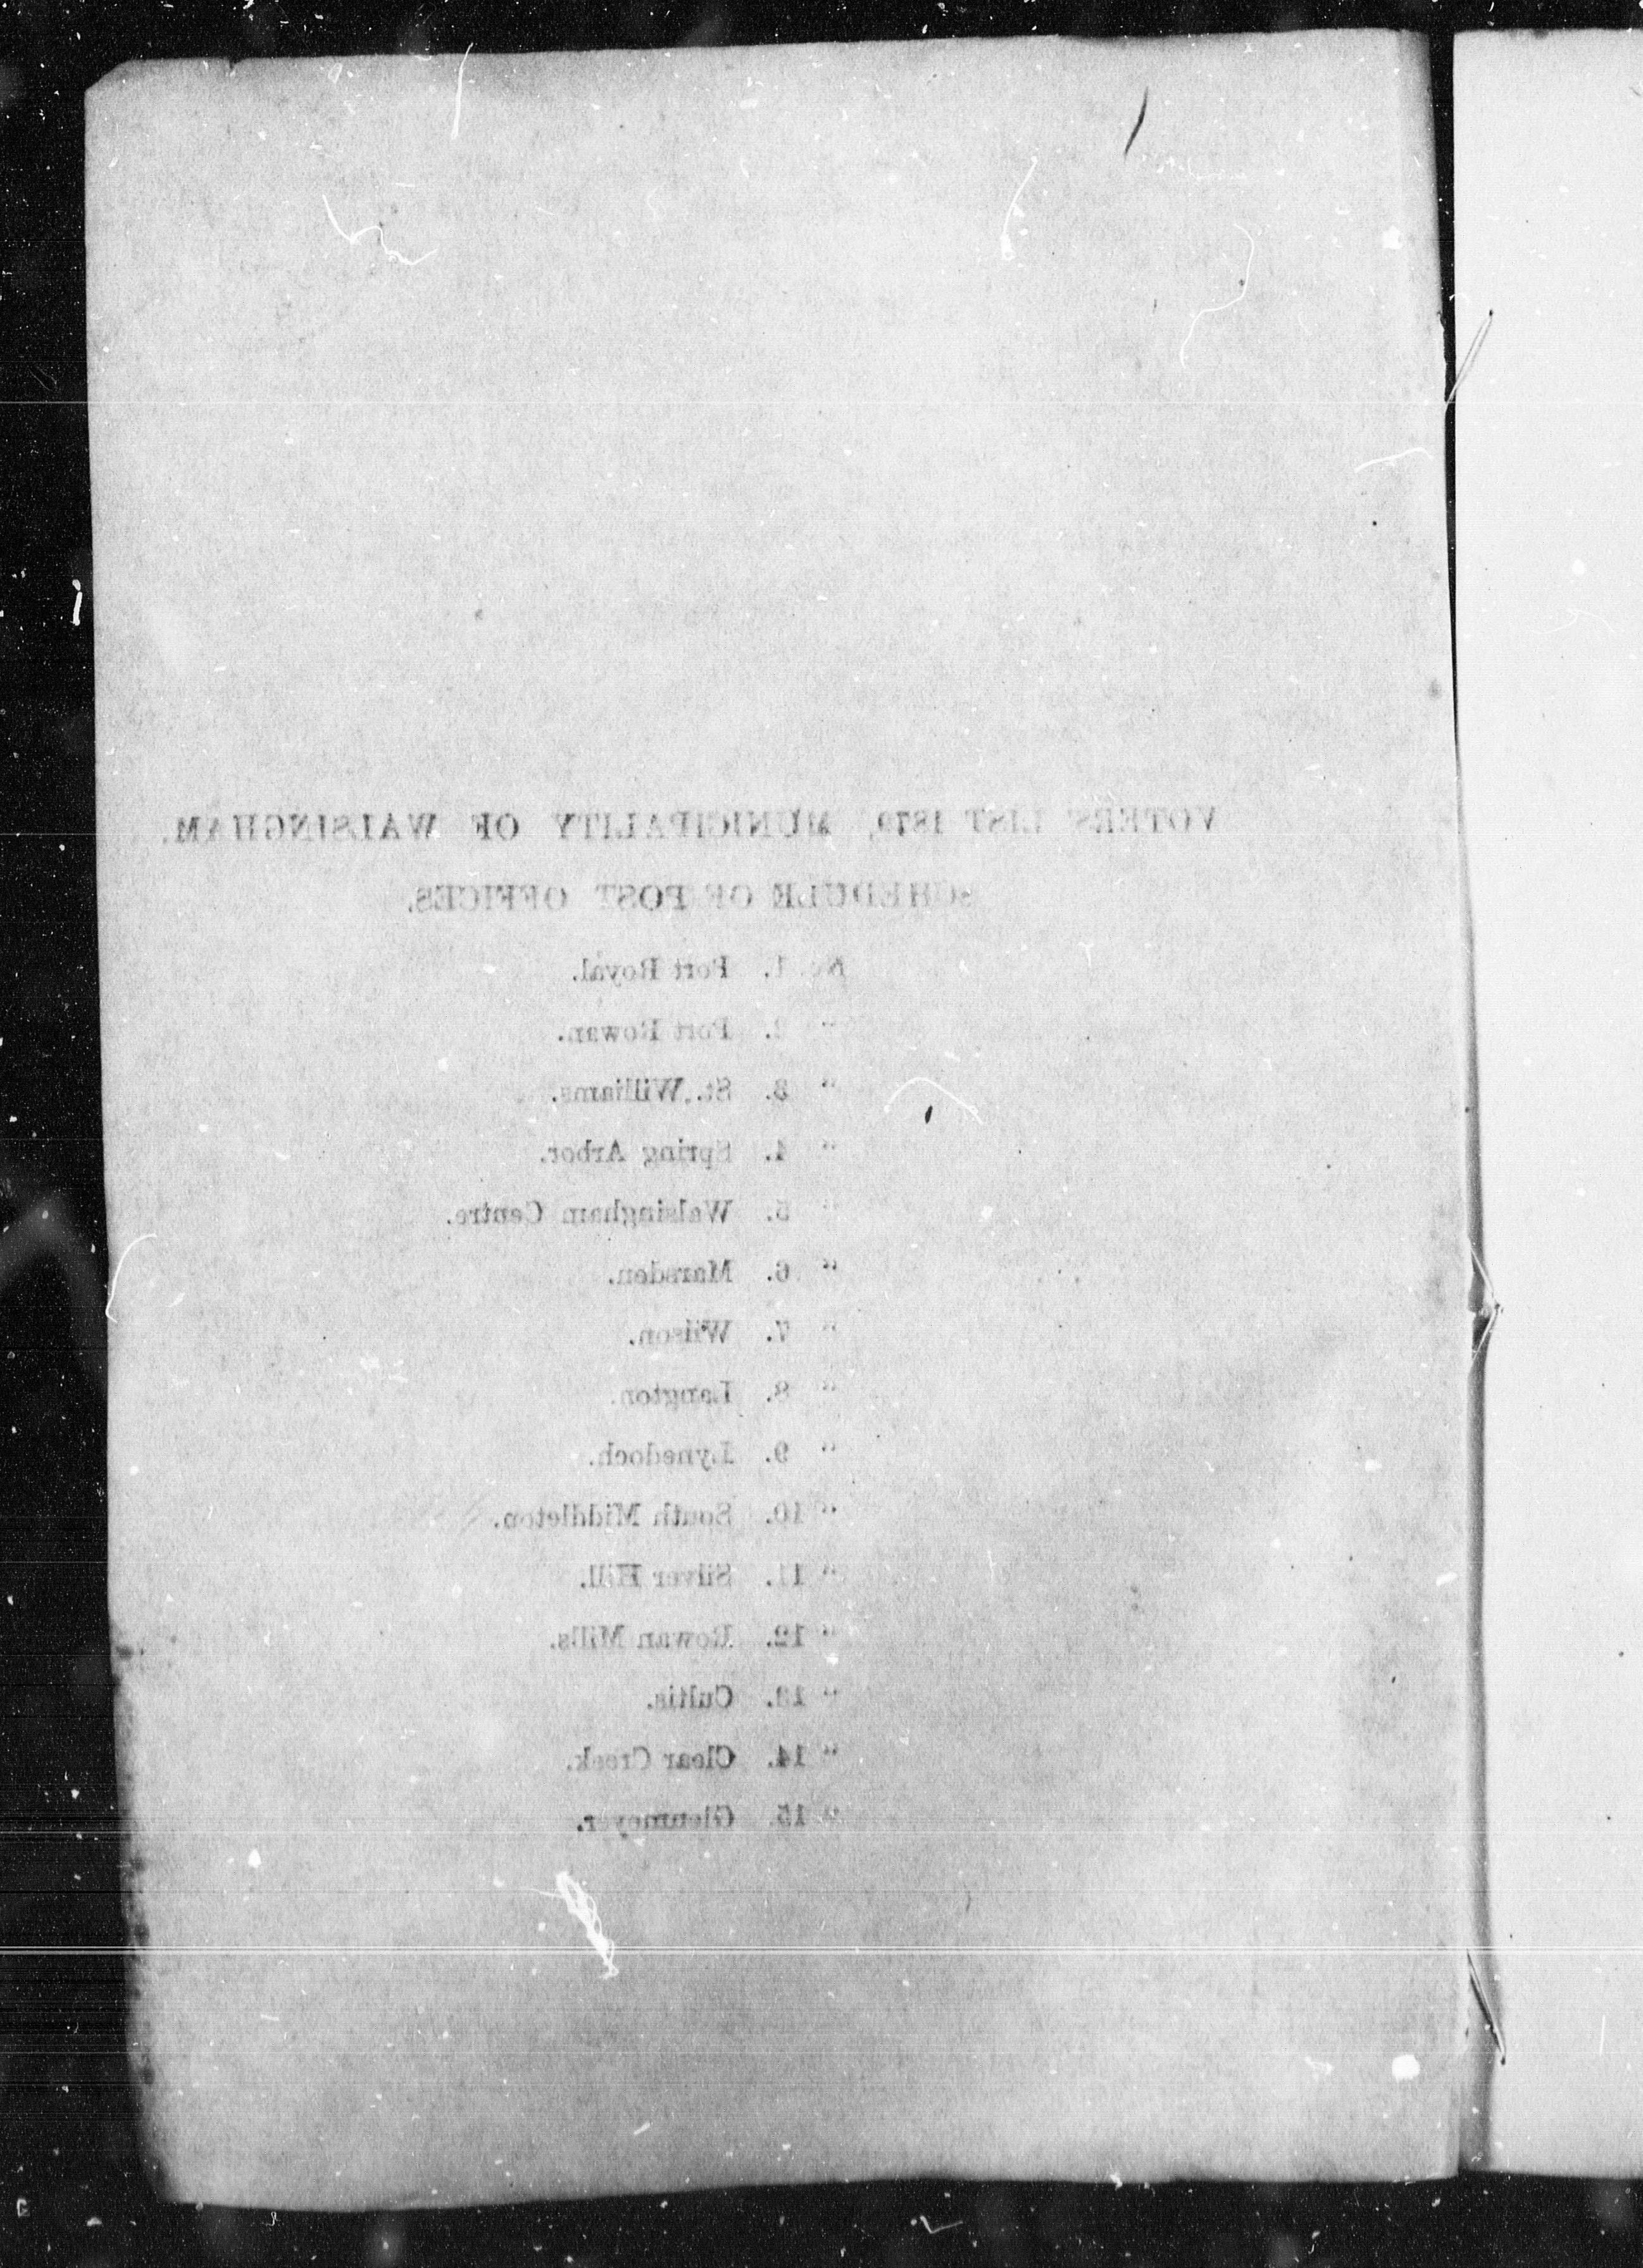 VOTERS' LIST 1879, MUNICIPALITY OF WALSINGHAM.
SCHEDULE OF POST OFFICES.
No. 1. Port Royal.
" 2. Port Rowan.
" 3. St. Williams.
" 4. Spring Arbor.
" 5. Walsingham Centre.
" 6. Marsden.
" 7. Wilson.
" 8. Langton.
" 9. Lynedoch.
" 10. South Middleton.
" 11. Silver Hill.
" 12. Rowan Mills.
" 13. Cultis.
" 14. Clear Creek.
" 15. Glenmeyer.